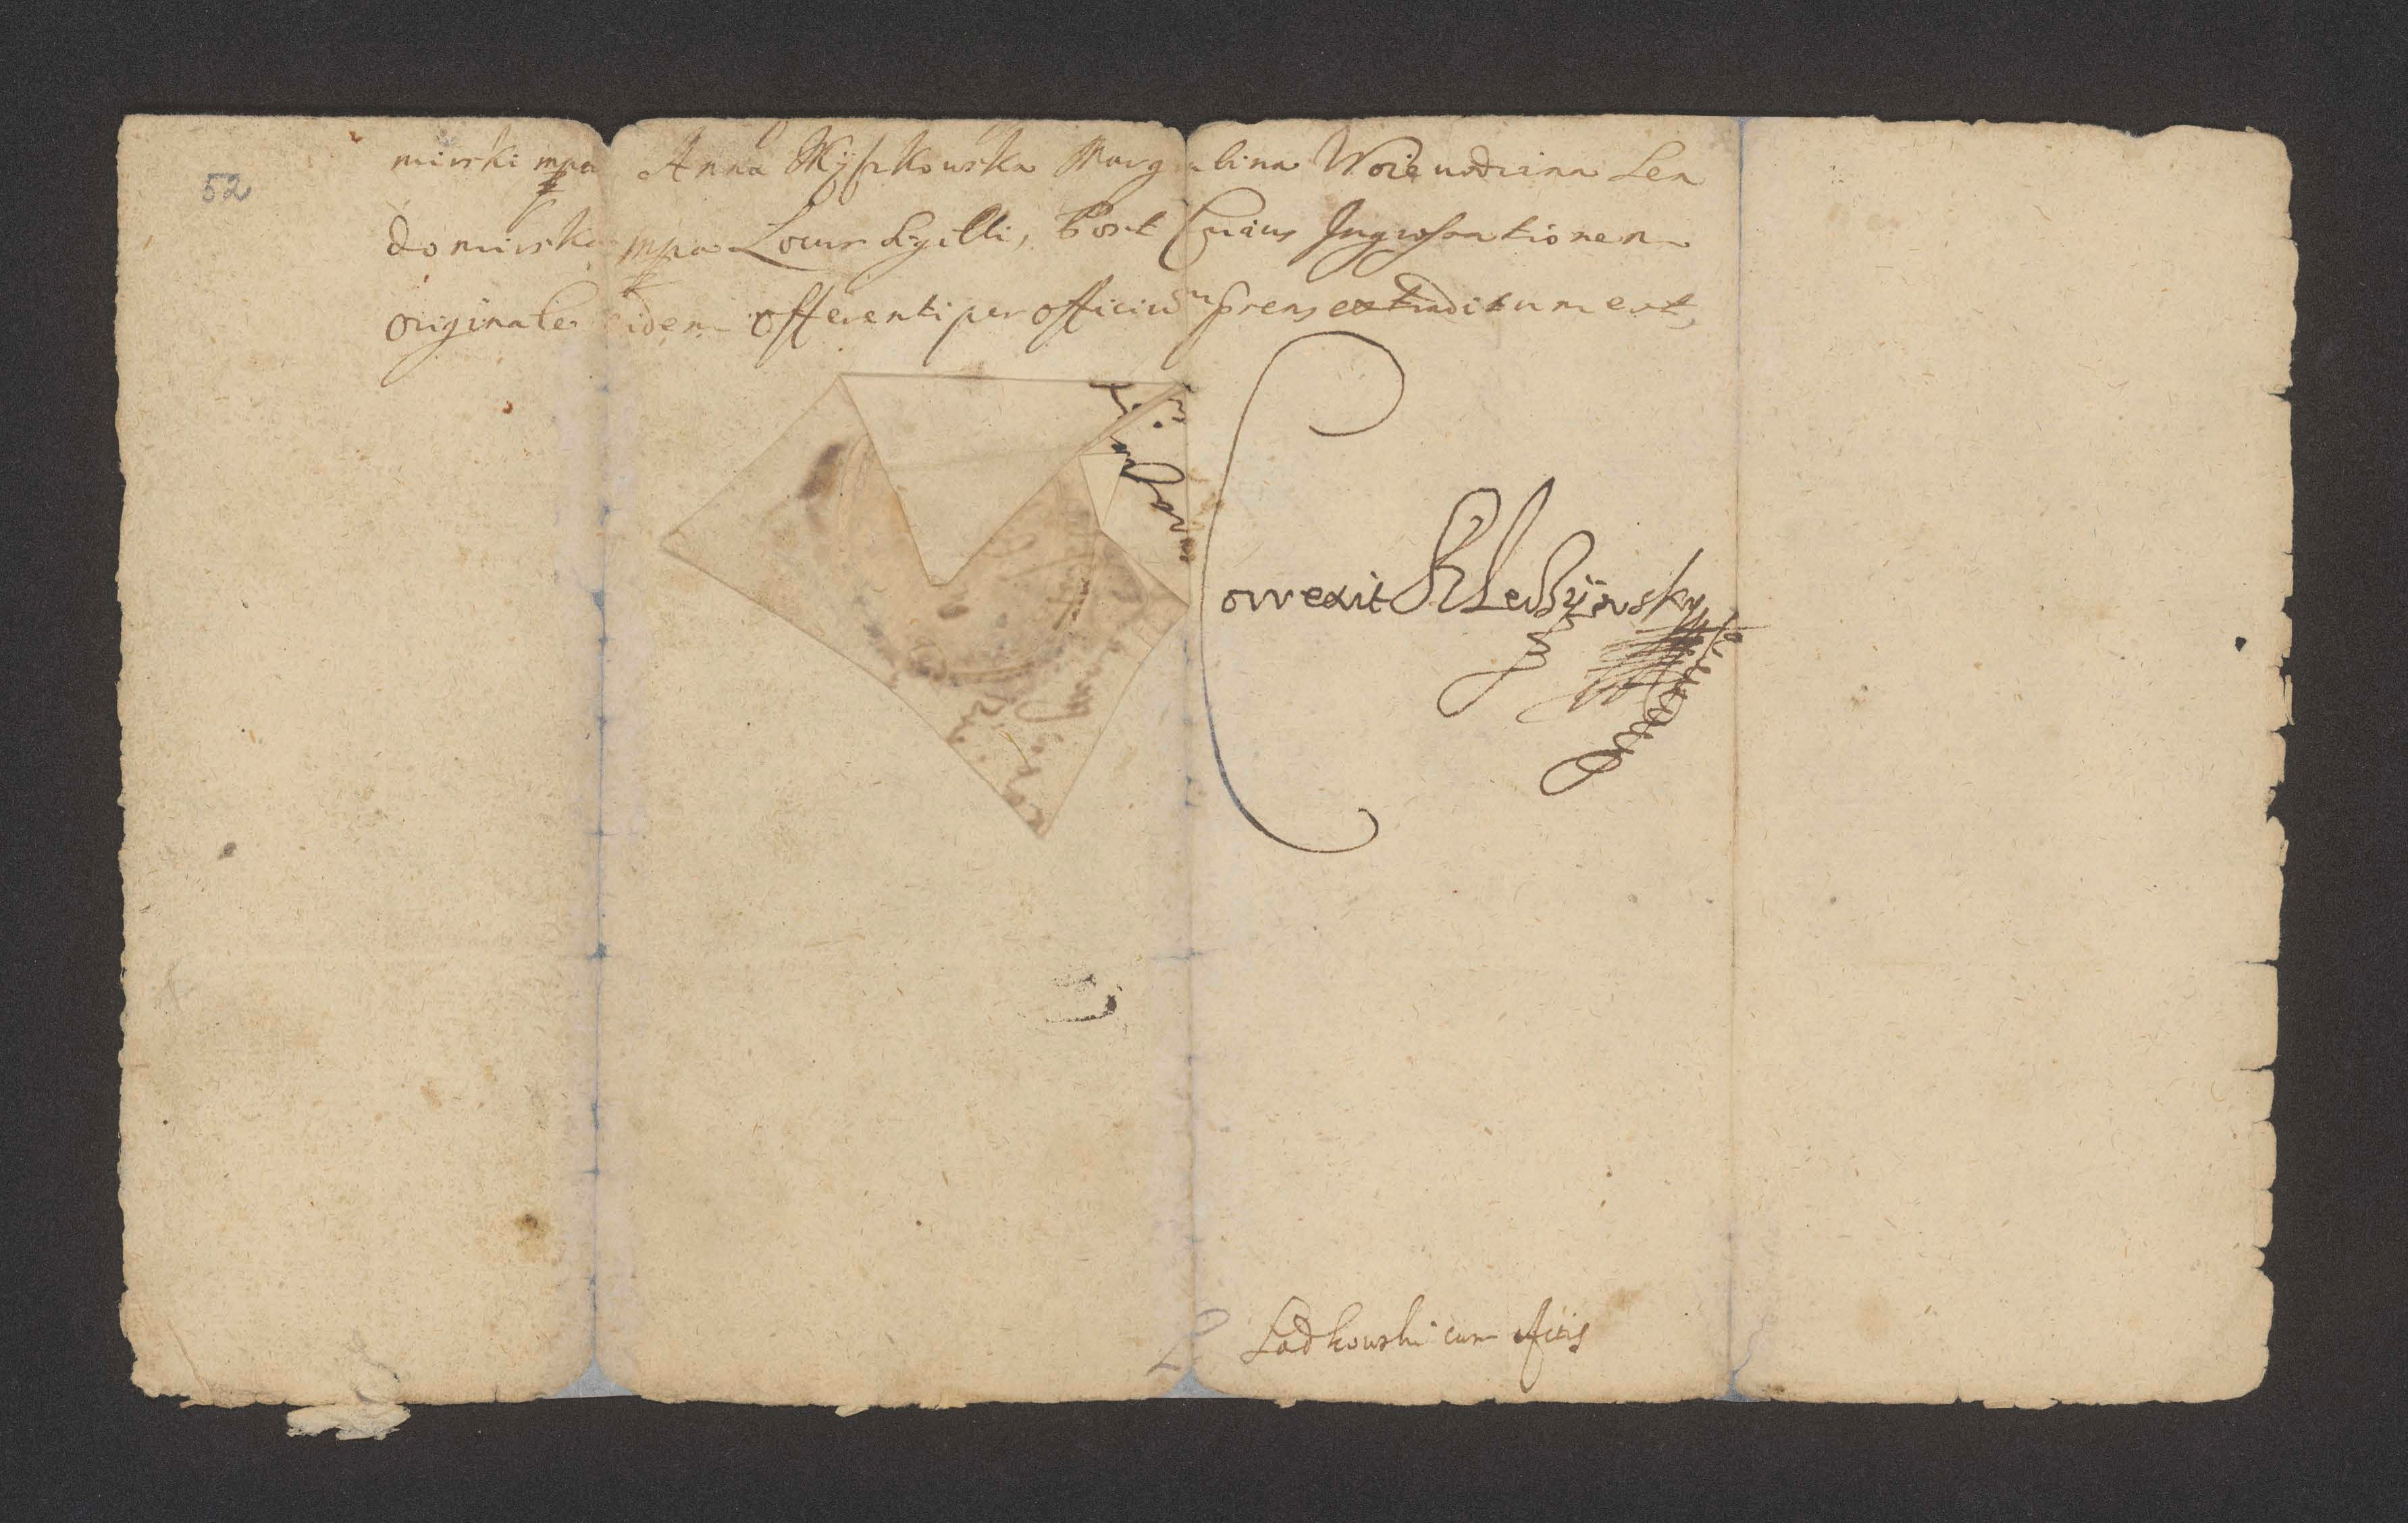 52
mirski mpa Anna Myszkowska Margrabina Woiewodzina Sen
domirska mpa Locus Sigilli, Post Cuius Ingrossationem
originale eidem offerenti per officium prens extraditum est,
Correxit
Ladkowski cum Actis